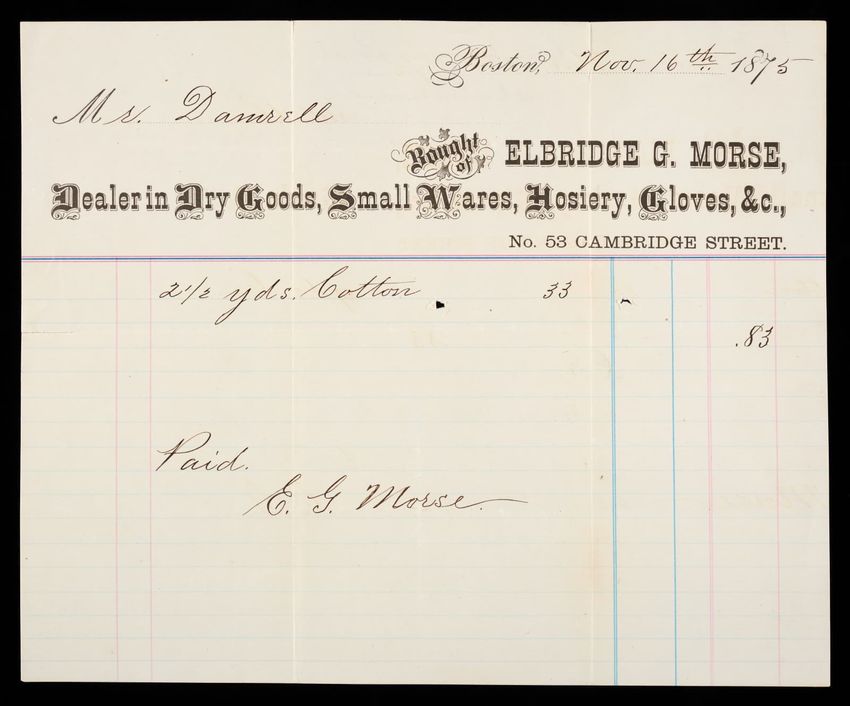 Boston, Nov. 16th 1875
Mr. Damrell
Bought of ELBRIDGE G. MORSE,
Dealer in Dry Goods, Small Wares, Hosiery, Gloves, &c.,
No. 53 CAMBRIDGE STREET.
2 1/2 yds. Cotton 33
.83
Paid.
E. G. Morse.